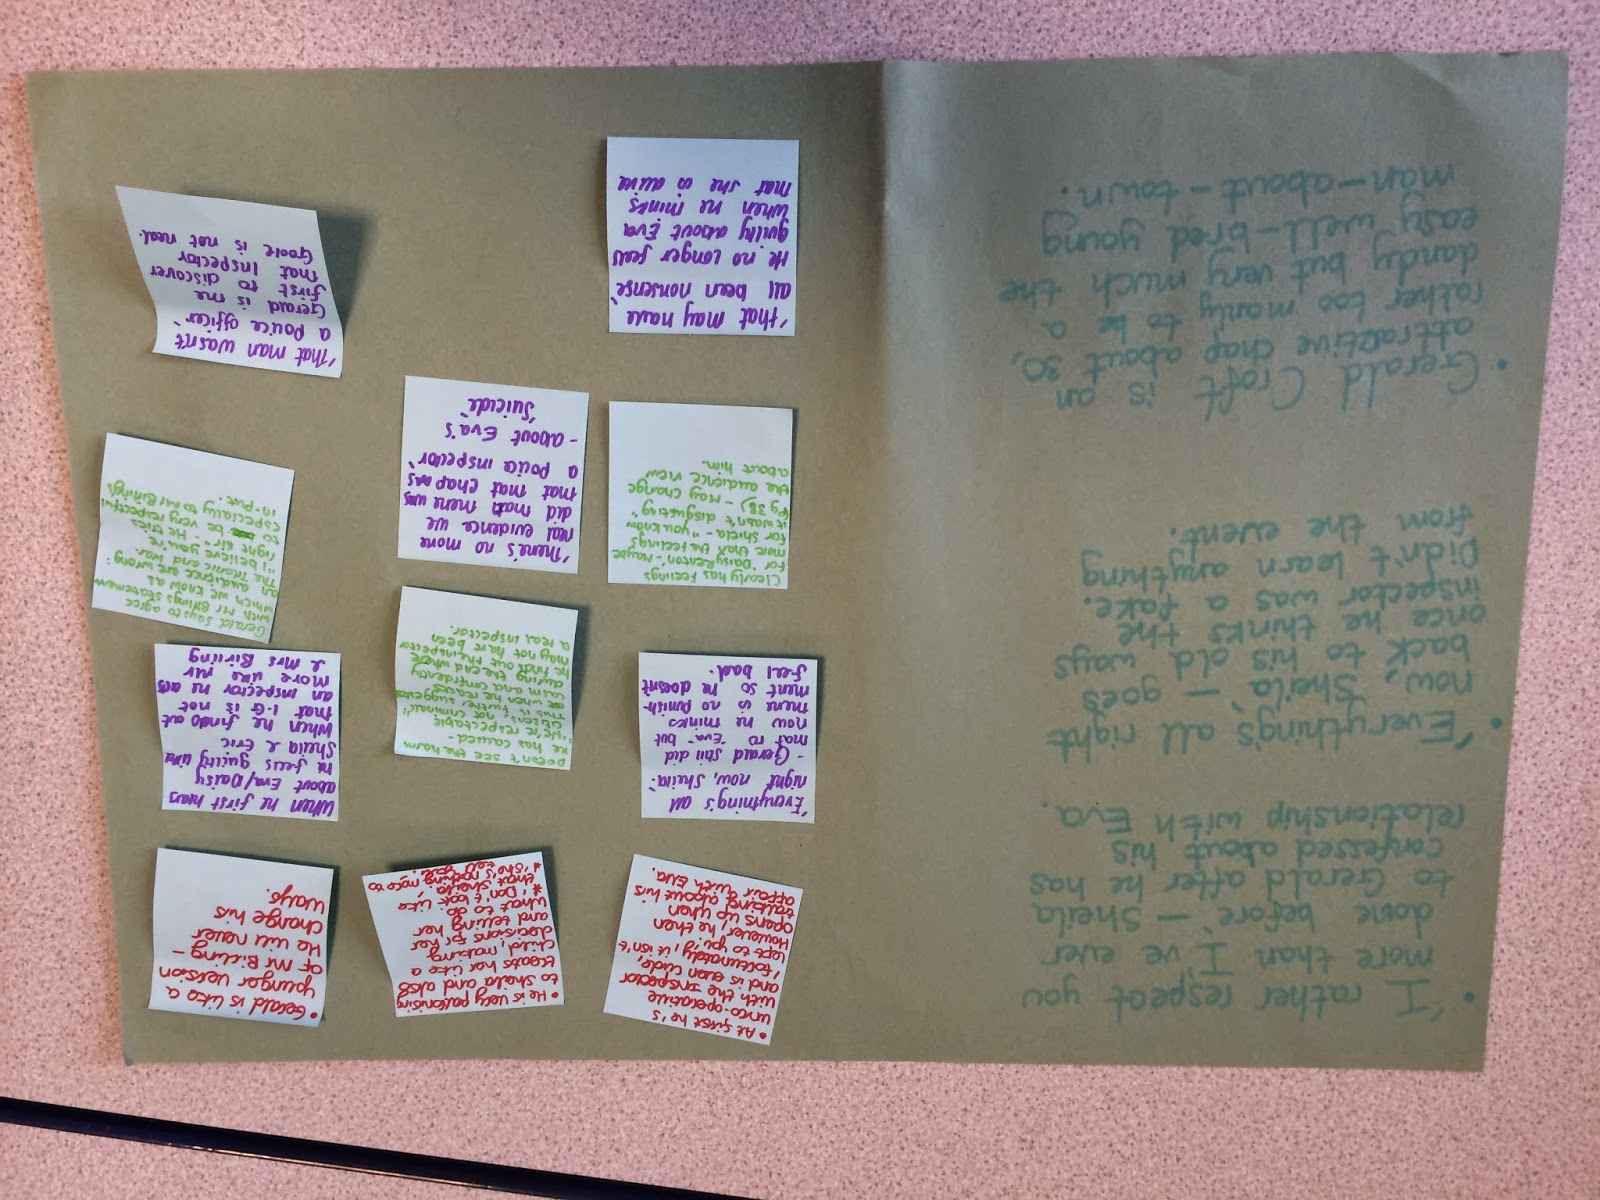 • 'I rather respect you
more than I've ever
done before' – Sheila
to Gerald after he has
confessed about his
relationship with Eva.
• 'Everything's all right
now, Sheila' – goes
back to his old ways
once he thinks the
inspector was a fake.
Didn't learn anything
from the event.
• Gerald Croft is an
attractive chap about 30,
rather too manly to be a
dandy but very much the
easy well-bred young
man-about-town.
• At first he's
unco-operative
with the inspector
and is even rude,
'fortunately, it isn't
left to you'.
However he then
opens up when
talking about his
affair with Eva.
• He is very patronising
to Sheila and also
treats her like a
child, making
decisions for her
and telling her
what to do.
* 'Don't look like
that Sheila'
* 'She's nothing more to
tell you.'
• Gerald is like a
younger version
of Mr Birling –
He will never
change his
ways.
'Everything's all
right now, Sheila'
- Gerald still did
that to 'Eva' but
now he thinks
there is no punish-
ment so he doesn't
feel bad.
Doesn't see the harm
he has caused -
"we're respectable
citizens, not criminals",
This is further suggested
when he reacts
calm and confidently
during the end where
he finds out the inspector
may not have been
a real inspector.
When he first hears
about Eva/Daisy
he feels guilty like
Sheila & Eric
When he finds out
that I.G is not
an inspector he acts
more like Mr
& Mrs Birling
Clearly has feelings
for 'Daisy Renton'. Maybe
more than the feelings
for Sheila - "you know
it wasn't disgusting"
(Pg 38) - may change
the audience view
about him.
'There's no more
real evidence we
did that there was
that that chap was
a police inspector'
- about Eva's
'Suicide'
Gerald says to agree
with Mr Birlings statement
which we know as
an audience are wrong:
The Titanic and war.
"I believe you're
right sir" - He tries
to be very respectful
especially to Mr Birlings
in-put.
'that may have
all been nonsense'
He no longer feels
guilty about Eva
when he thinks
that she is alive
'That man wasn't
a police officer'
Gerald is the
first to discover
that Inspector
Goole is not real.